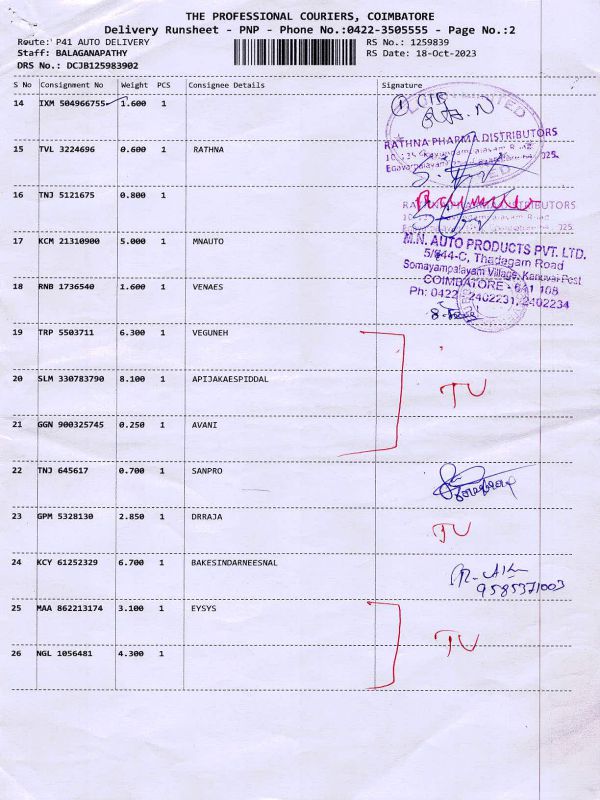 THE PROFESSIONAL COURIERS, COIMBATORE
Delivery Runsheet - PNP - Phone No.:0422-3505555 - Page No.:2
Route: P41 AUTO DELIVERY RS No.: 1259839
Staff: BALAGANAPATHY RS Date: 18-Oct-2023
DRS No.: DCJB125983902
S No Consignment No Weight PCS Consignee Details Signature
14 IXM 504966755 1.600 1
15 TVL 3224696 0.600 1 RATHNA
RATHNA PHARMA DISTRIBUTORS
16 TNJ 5121675 0.800 1
17 KCM 21310900 5.000 1 MNAUTO
M.N. AUTO PRODUCTS PVT. LTD.
5/644-C, Thadagam Road
Somayampalayam Village, Kanuvai Post
COIMBATORE - 641 108
Ph: 0422 - 2402231, 2402234
18 RNB 1736540 1.600 1 VENAES
19 TRP 5503711 6.300 1 VEGUNEH
20 SLM 330783790 8.100 1 APIJAKAESPIDDAL
TU
21 GGN 900325745 0.250 1 AVANI
22 TNJ 645617 0.700 1 SANPRO
23 GPM 5328130 2.850 1 DRRAJA
TU
24 KCY 61252329 6.700 1 BAKESINDARNEESNAL
9585371003
25 MAA 862213174 3.100 1 EYSYS
TU
26 NGL 1056481 4.300 1